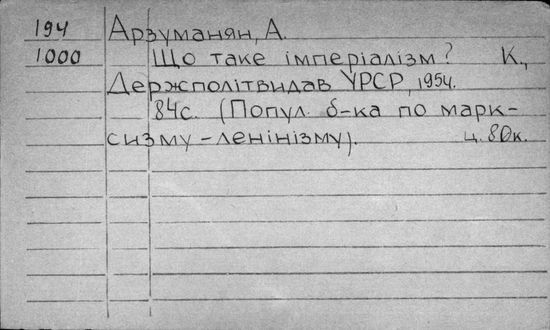 194 Арзуманян, А.
1000 Що таке імперіалізм? К.,
Держполітвидав УРСР, 1954.
84с. (Попул. б-ка по марк-
сизму-ленінізму). ц. 80к.